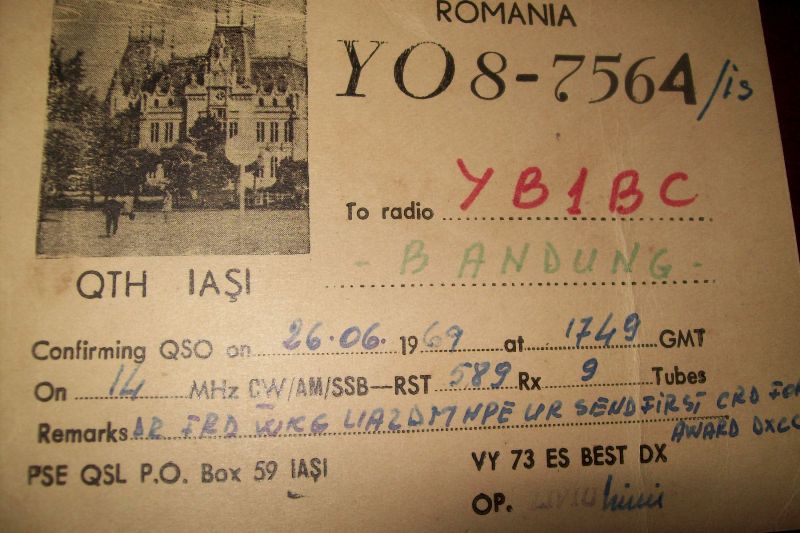 ROMANIA
YO8-7564/is
To radio YB1BC
- BANDUNG -
QTH IAŞI
Confirming QSO on 26.06. 1969 at 1749 GMT
On 14 MHz CW/AM/SSB—RST 589 Rx 9 Tubes
Remarks DR FRD WKG UA2DM NPE UR SEND FIRST CRD FOR
AWARD DXCC
PSE QSL P.O. Box 59 IAŞI
VY 73 ES BEST DX
OP.